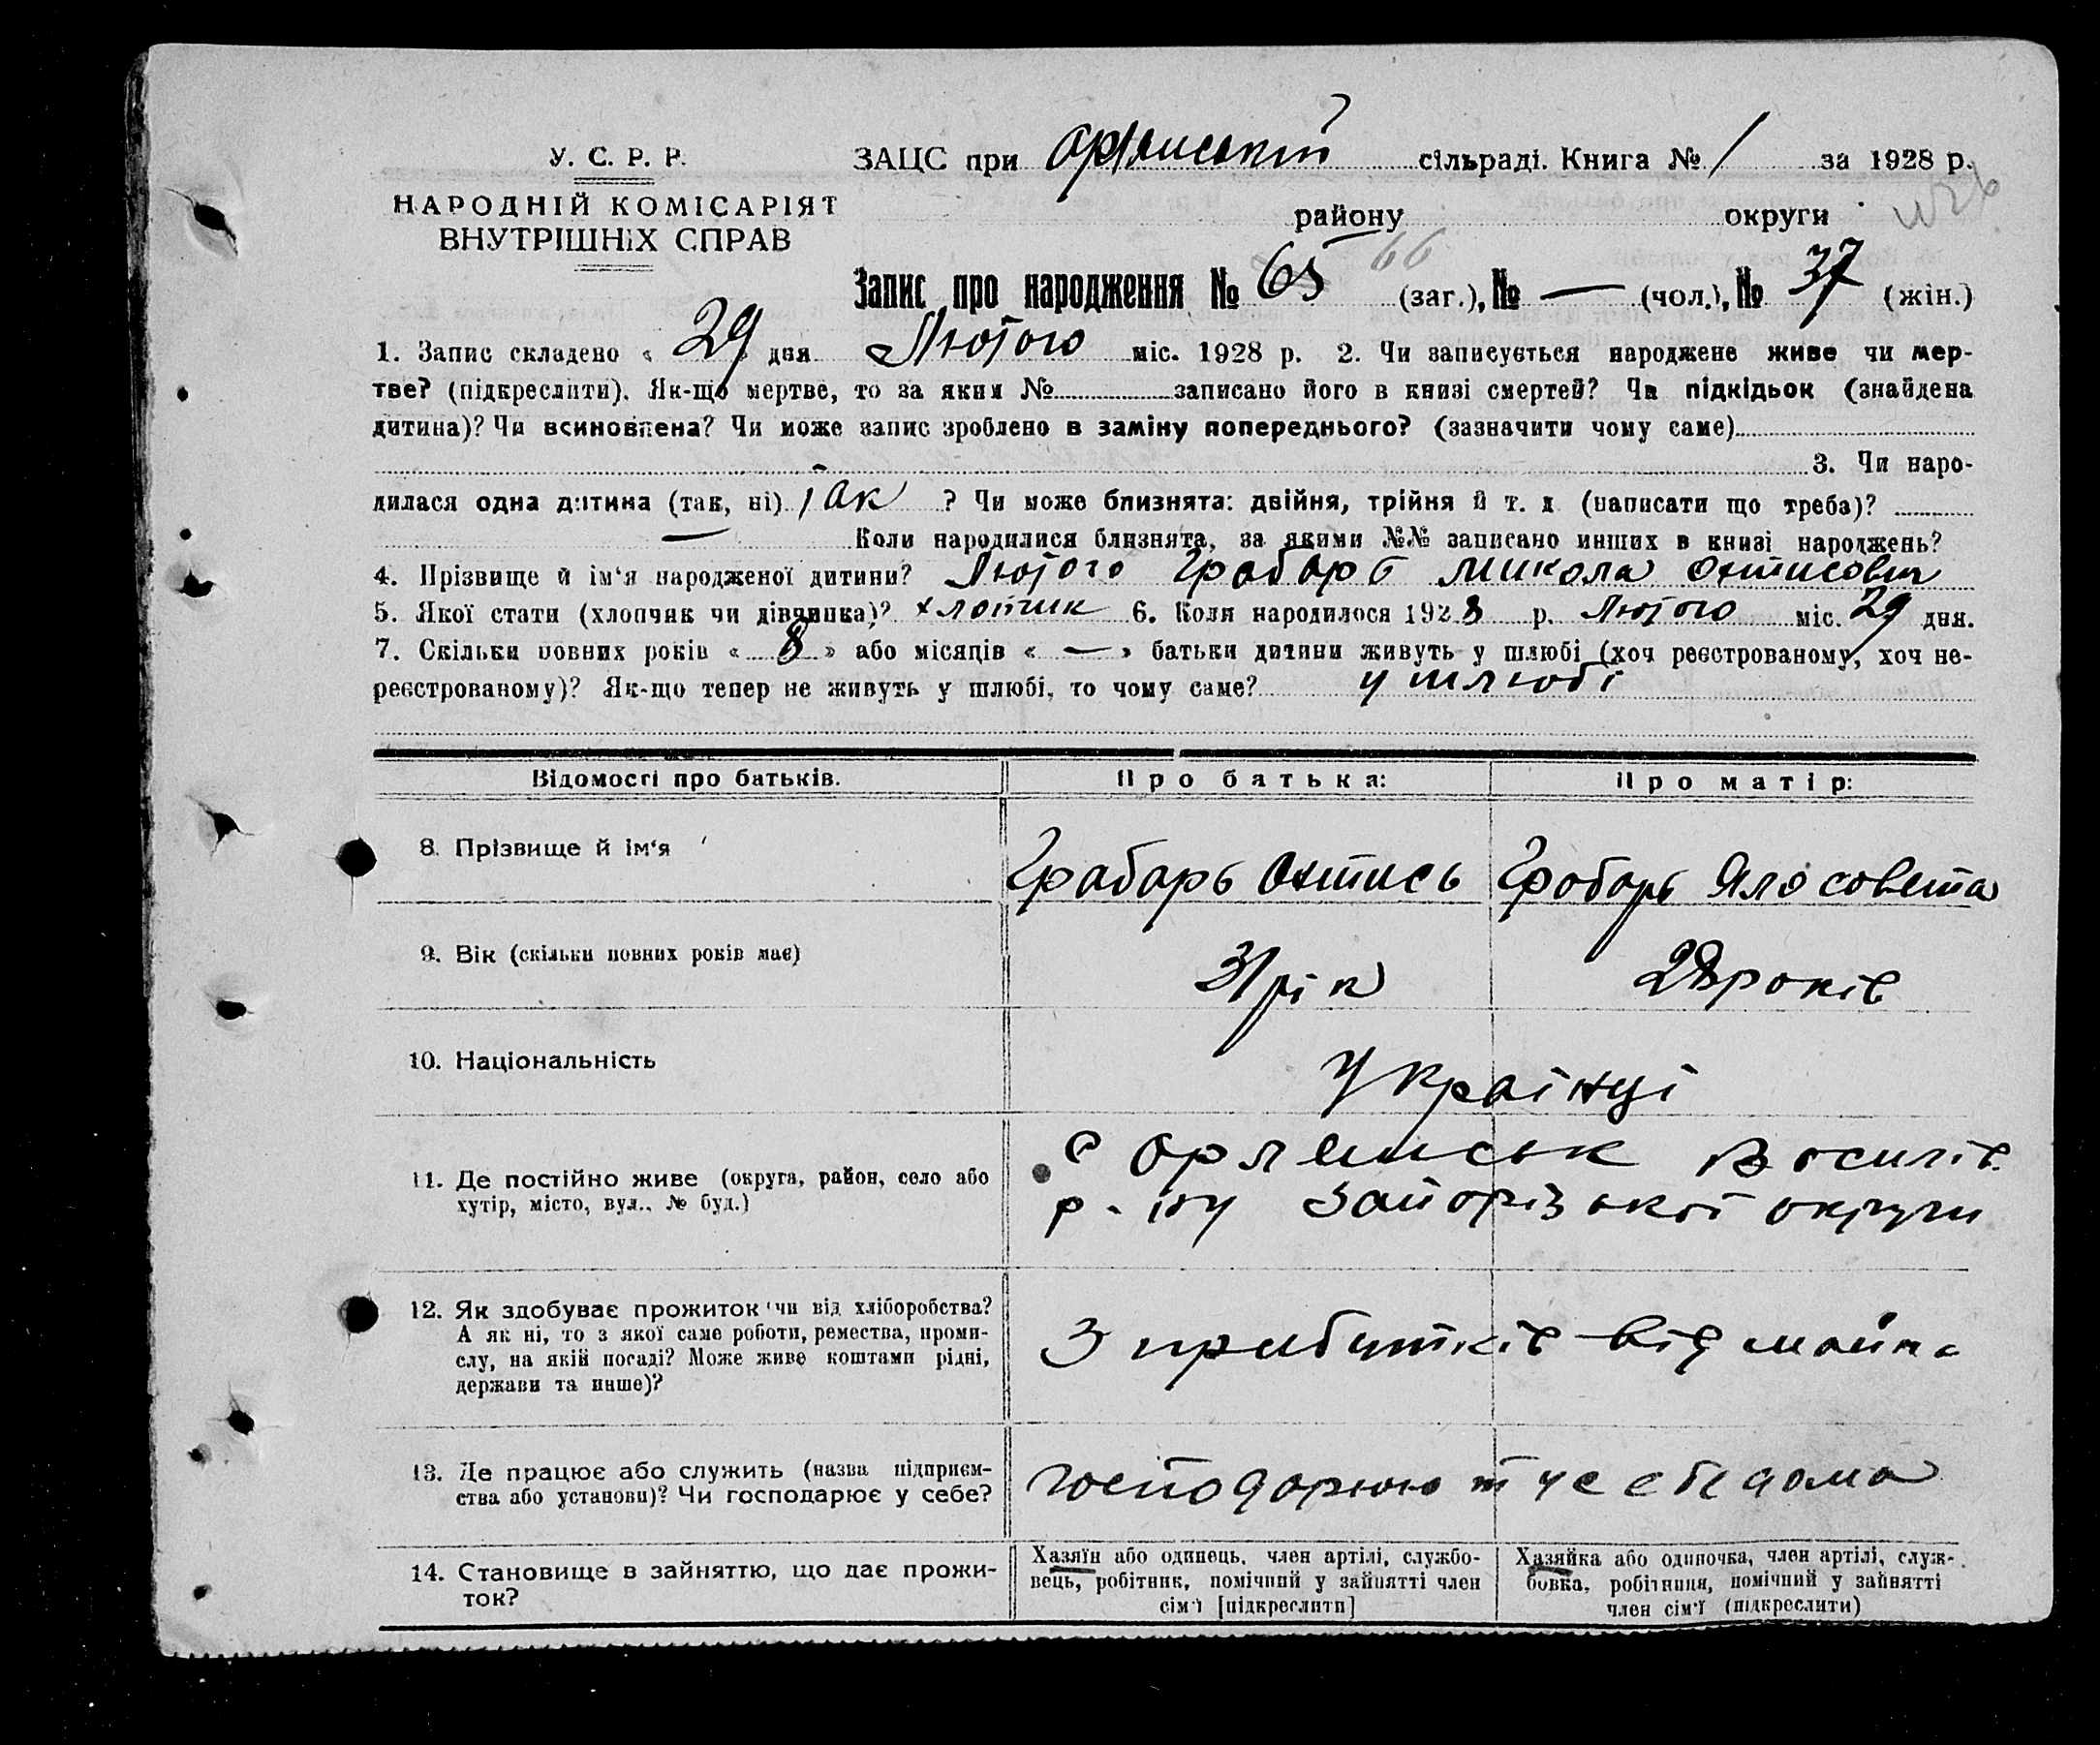 У. С. Р. Р.
НАРОДНІЙ КОМІСАРІЯТ
ВНУТРІШНІХ СПРАВ
ЗАЦС при сільраді. Книга № 1 за 1928 р.
району округи
Запис про народження № 65 66 (заг.), № — (чол.), № 37 (жін.)
1. Запис складено « 29 » дня Лютого міс. 1928 р. 2. Чи записується народжене живе чи мер-
тве? (підкреслити). Як-що мертве, то за яким № записано його в книзі смертей? Чи підкідьок (знайдена
дитина)? Чи всиновлена? Чи може запис зроблено в заміну попереднього? (зазначити чому саме)
3. Чи наро-
дилася одна дитина (так, ні) так ? Чи може близнята: двійня, трійня й т. д. (написати що треба)?
— Коли народилися близнята, за якими №№ записано инших в книзі народжень?
4. Прізвище й ім‘я народженої дитини? Лютого Грабарь Микола Охтисович
5. Якої стати (хлопчик чи дівчинка)? хлопчик 6. Коли народилося 1928 р. Лютого міс. 29 дня.
7. Скільки повних років « 8 » або місяців « — » батьки дитини живуть у шлюбі (хоч реєстрованому, хоч не-
реєстрованому)? Як-що тепер не живуть у шлюбі, то чому саме? у шлюбі
Відомості про батьків. Про батька: Про матір:
8. Прізвище й ім‘я Грабарь Охтись Гробарь Ялосовета
9. Вік (скільки повних років має) 31 рік 28 років
10. Національність Українці
11. Де постійно живе (округа, район, село або
хутір, місто, вул., № буд.)
с Орлянськ Василів.
р-ну Запорізької округи
12. Як здобуває прожиток чи від хліборобства?
А як ні, то з якої саме роботи, ремества, проми-
слу, на якій посаді? Може живе коштами рідні,
держави та инше)?
З прибутків від майна
13. Де працює або служить (назва підприєм-
ства або установи)? Чи господарює у себе?
господорюют у себе дома
14. Становище в зайняттю, що дає прожи-
ток?
Хазяїн або одинець, член артілі, службо-
вець, робітник, помічний у зайнятті член
сім‘ї [підкреслити]
Хазяйка або одиночка, член артілі, служ-
бовка, робітниця, помічний у зайнятті
член сім‘ї (підкреслити)